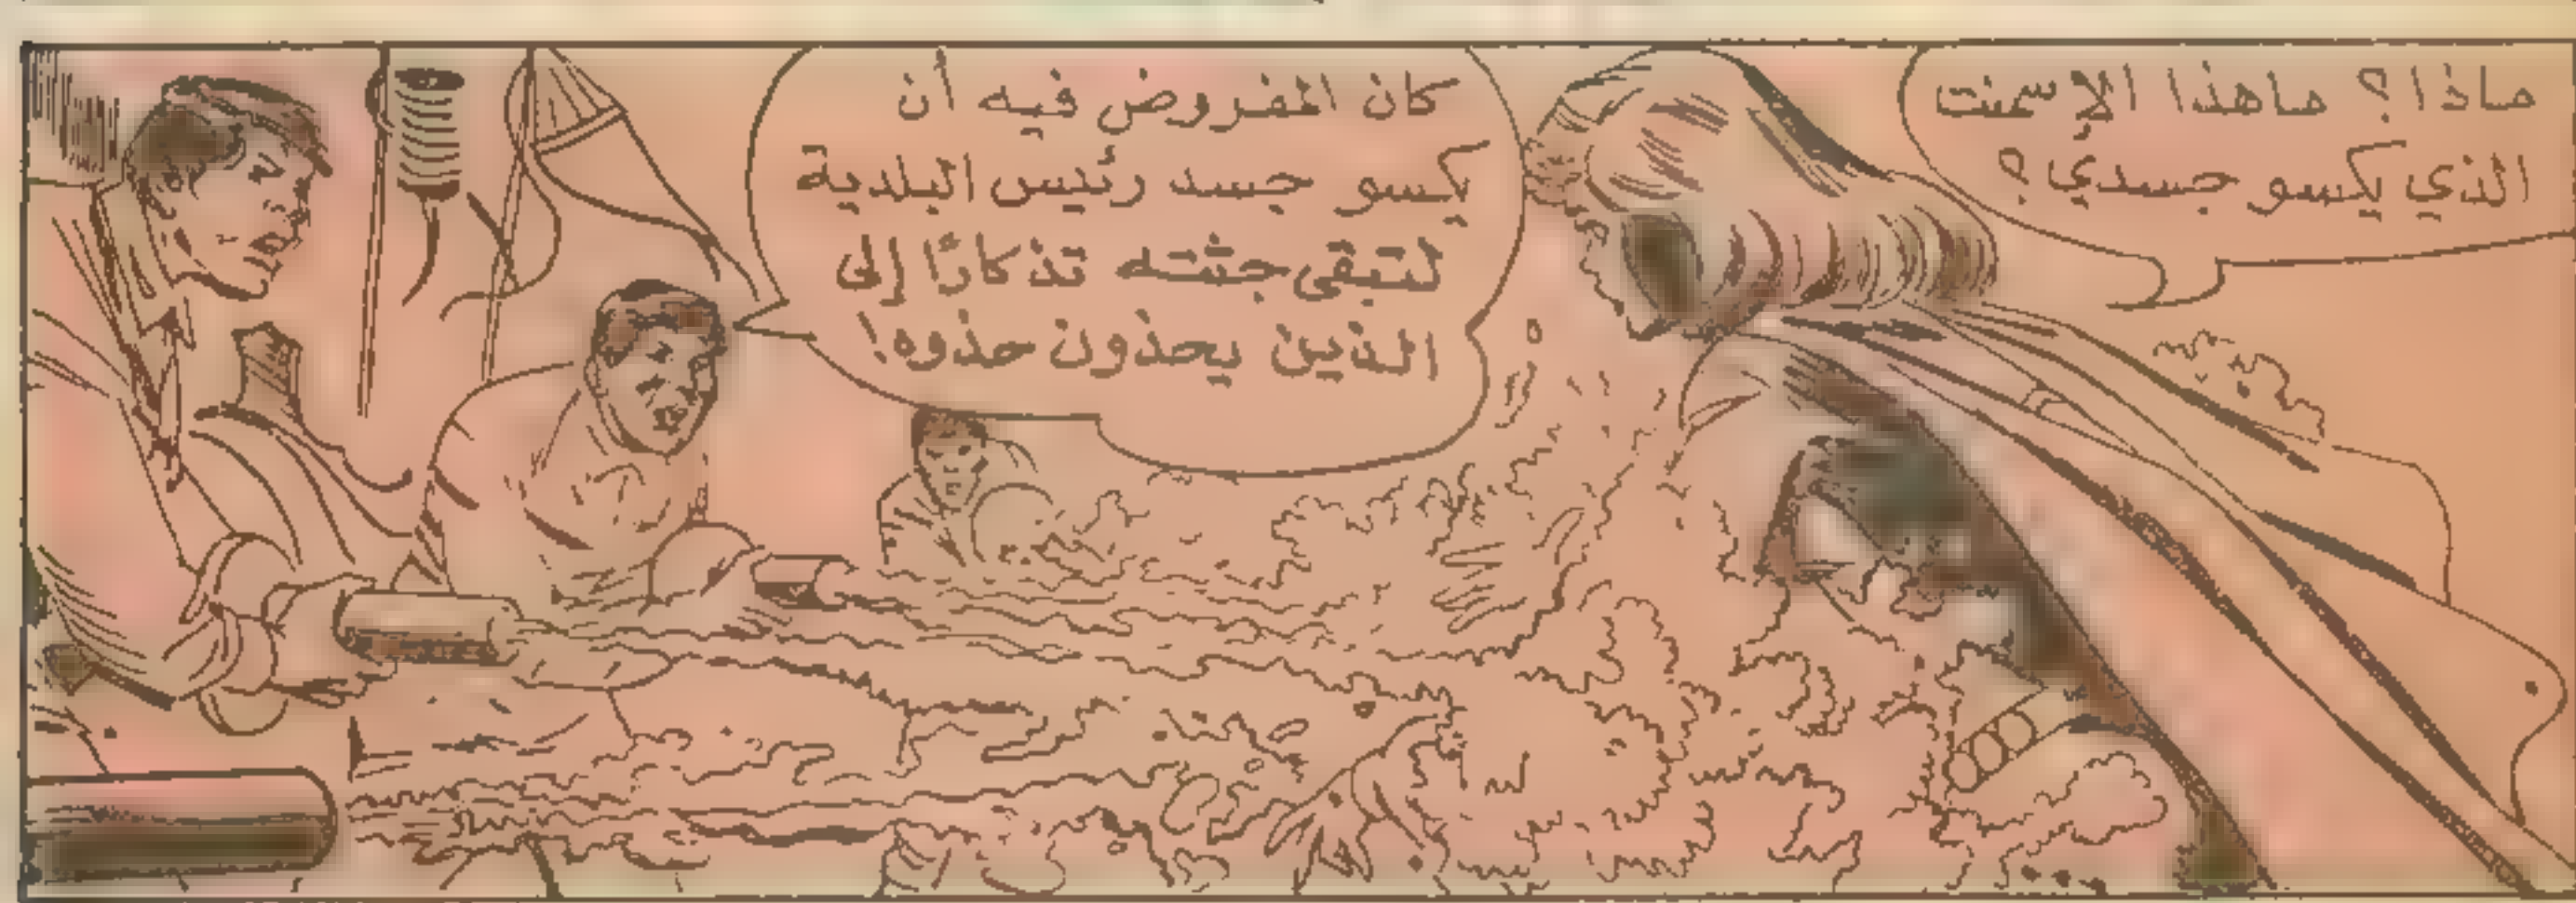 ماذا؟ ماهذا الإسمنت
الذي يكسو جسدي؟
كان المفروض فيه أن
يكسو جسد رئيس البلدية
لتبقى جثته تذكارًا إلى
الذين يحذون حذوه!